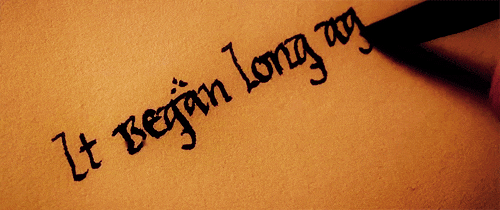 It Began long ag